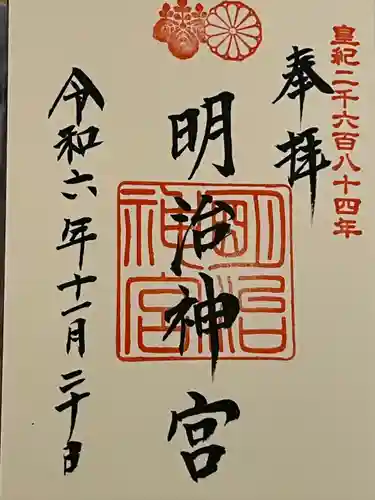 皇紀二千六百八十四年
奉拝
明治神宮
明治
神宮
令和六年十一月二十日